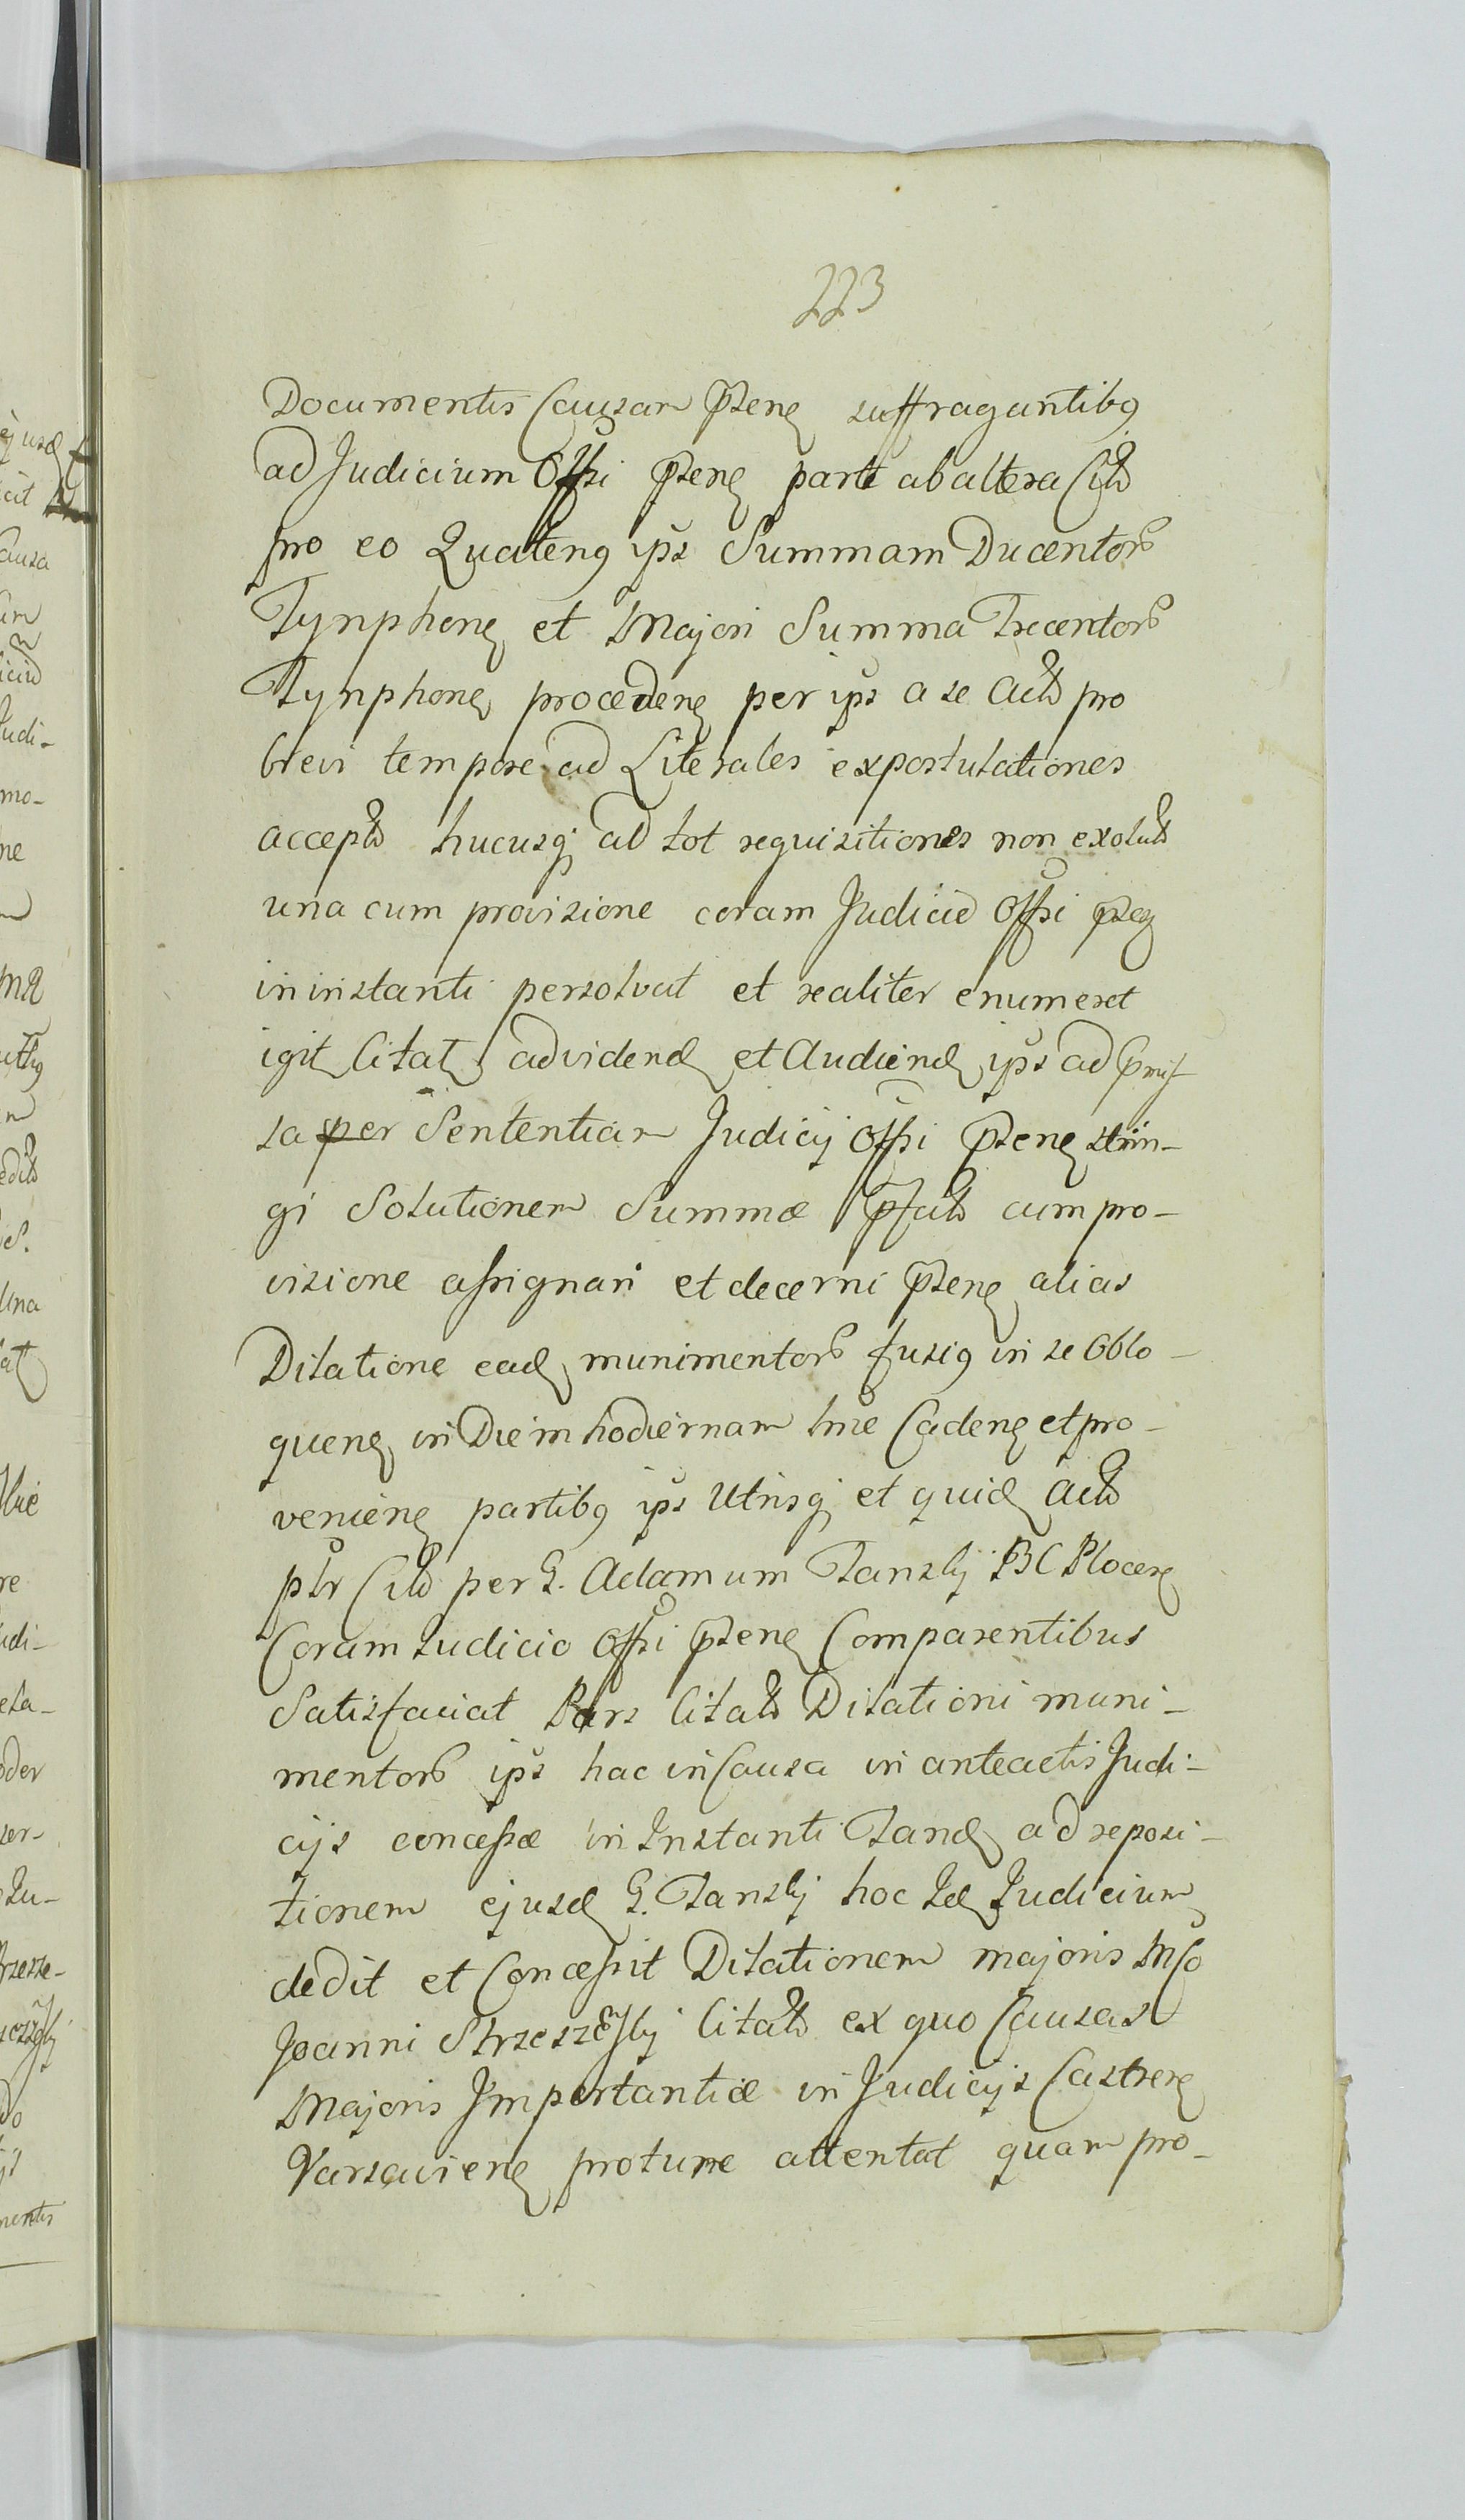 223
Documentis Causam Pseng suffragantibg
ad Judicium Offsi Pseng parte ab altera Citb
pro eo Quateng ips Summam Ducentorb
Tynphong et Majori Summa Trecentorb
Tynphong procedeng per ips a se Actb pro
brevi tempore ad Literales expostulationes
acceptb hucusq ad tot requisitiones non exolutb
una cum provisione coram Judicio Offsi
in instanti persolvat et realiter enumeret
igit Citat ad vidend et Audiend ips ad
sa per Sententiam Judicij Offsi Pseng strin-
gi Solutionem Summæ Pfatb cum pro-
visione assignari et decerni Pseng alias
Dilatione ead munimentorb fusig in se Oblo-
queng in Diem hodiernam hue Cadeng et pro-
venieng partibg ips Utrisq et quid Actb
ptr Citb per G. Adamum Tanslij BC Ploceng
Coram Judicio Offsi Pseng Comparentibus
Satisfaciat Pars Citatb Dilationi muni-
mentorb ips hac in Causa in anteactis Judi-
cijs concessæ in Instanti Tand ad reposi-
tionem ejusd G. Tanslij hoc Id Judicium
dedit et Concessit Dilationem majoris
Joanni Citatb ex quo Causas
Majoris Importantiæ in Judicijs Castreng
Varsavieng protunc attentat quam pro-